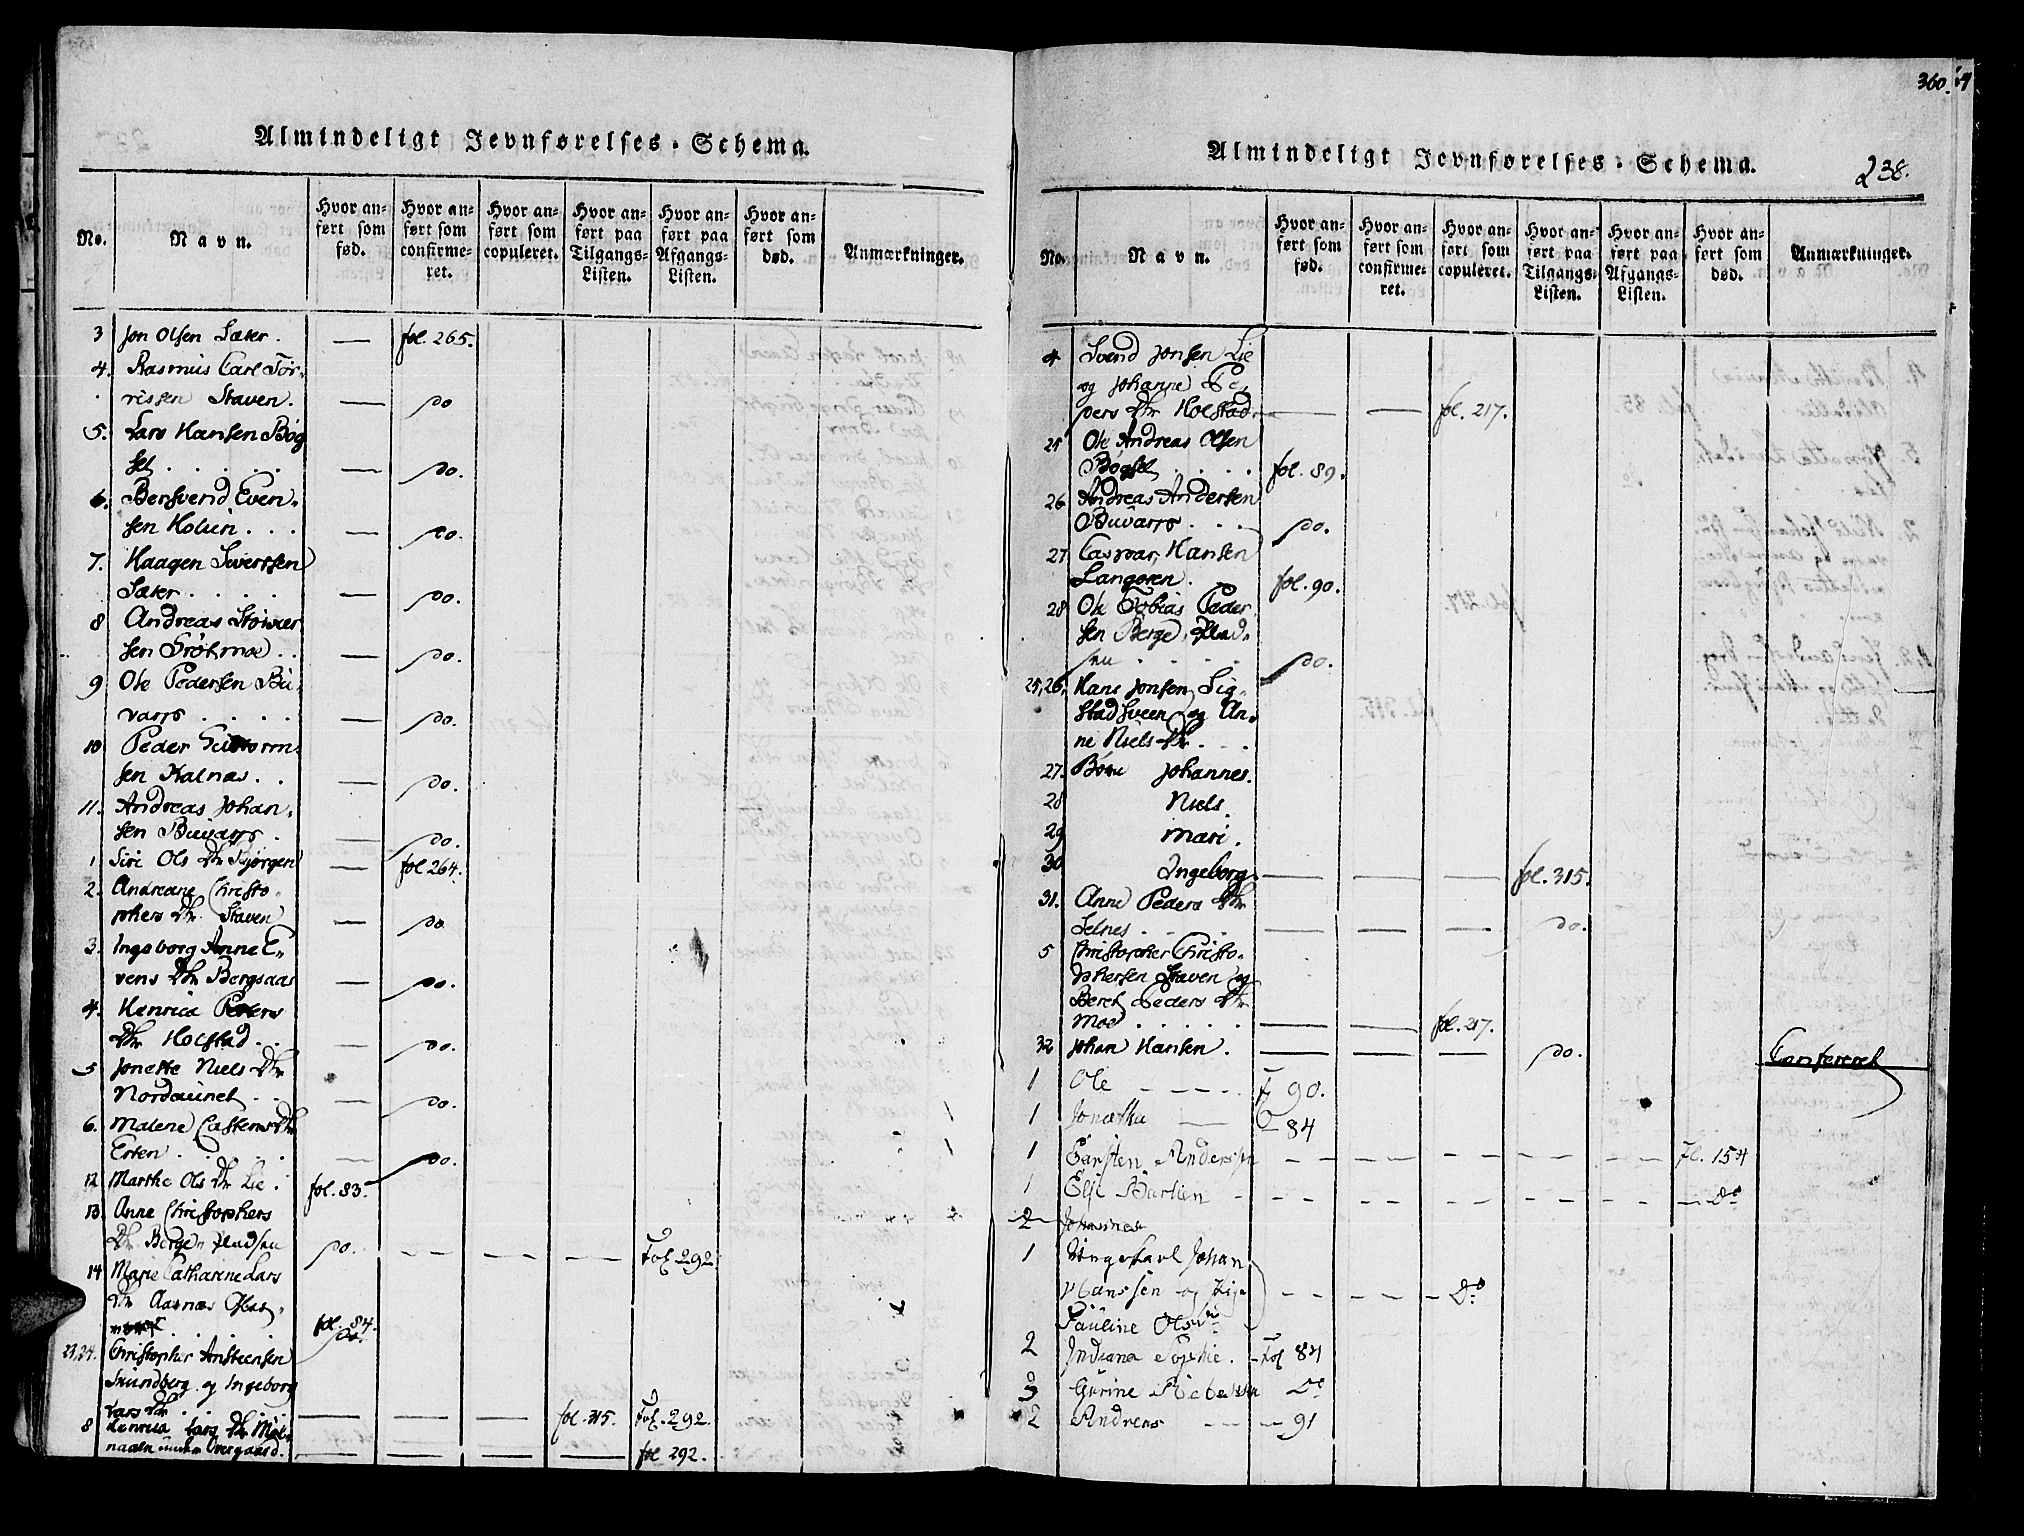 Almindeligt Jevnførelses-Schema.
No.
Navn.
Hvor an-
ført som
fød.
Hvor an-
ført som
confirme-
ret.
Hvor an-
ført som
copuleret.
Hvor an-
ført paa
Tilgangs-
Listen.
Hvor an-
ført paa
Afgangs-
Listen.
Hvor an-
ført som
død.
Anmærkninger.
3 Jon Olsen Sæter. — fol. 265.
4. Rasmus Carl Tør-
rissen Staven. — do
5. Lars Hansen Bøg
sel . . . . — do.
6. Bersvend Even-
sen Holum . . . — do.
7. Haagen Siverssen
Sæter . . . . — do.
8 Andreas
sen . . — do.
9 Ole Pedersen Bu-
varp . . . . — do.
10 Peder
sen Kalnæs . . — do.
11. Andreas Johan-
sen Buvarp . — do.
1 Siri Ols Dtr — fol 264.
2. Andreane Christo-
phers Dtr. Staven — do
3. Ingeborg Anne E-
vens Dtr Bergsaas — do.
4. Henrica Peters
Dtr Holstad . . — do.
5 Jonette Niels Dtr
Nordaunet . . — do.
6. Malene Castens Dtr
Erten . . . . — do.
12 Marthe Ols Dtr Lie . fol. 83.
13. Anne Christophers
Dtr Berge-Pladsen do. — — — — Fol 292.
14 Marie Catharine Lars
Dtr Aasnæs
. . . . fol. 84.
do.
23, 24. Christopher Anstensen
og Ingeborg
Lars Dtr . . . — — — fol. 315. Fol. 292.
8 Henrica Lars Dtr
naaen Overgaard. — — — — fol 292.
360.
Almindeligt Jevnførelses-Schema.
238.
No.
Navn.
Hvor an-
ført som
fød.
Hvor an-
ført som
confirme-
ret.
Hvor an-
ført som
copuleret.
Hvor an-
ført paa
Tilgangs-
Listen.
Hvor an-
ført paa
Afgangs-
Listen.
Hvor an-
ført som
død.
Anmærkninger.
4 Svend Jonsen Lie
og Johanne Pe-
ders Dtr Holstad — — fol. 217.
25 Ole Andreas Olsen
Bøgsel . . . . fol. 89.
26 Andreas Andersen
Buvarp . . . do.
27 Casper Hansen
Langøren . fol. 90.
28 Ole Tobias Peder
sen Berge-Plad-
sen . . . . do.
25, 26, Hans Jonsen Sig-
stadsveen og An-
ne Niels Dtr . . .
27. Børn Johannes.
28 Niels.
29 Mari.
30 Ingeborg — — — fol. 315.
31. Anne Peders Dtr
Selnes . . . — — — do.
5 Christopher Christo-
phersen Staven og
Beret Peders Dtr
Moe . . . . . — — fol. 217.
32 Johan Hansen . — — — do. Confereret
1 Ole — — — F 90.
1 — 84
1 Carsten Anderssen — — — — — Fl. 154
1 Else — — — — — — Do
2 Johannes
1 Ungekarl Johan
Hanssen og Pige
Pauline Ols Dtr — — — Do
2 Indiana Sophie. Fol 84
3 Gurine Do
2 Andreas — — 91